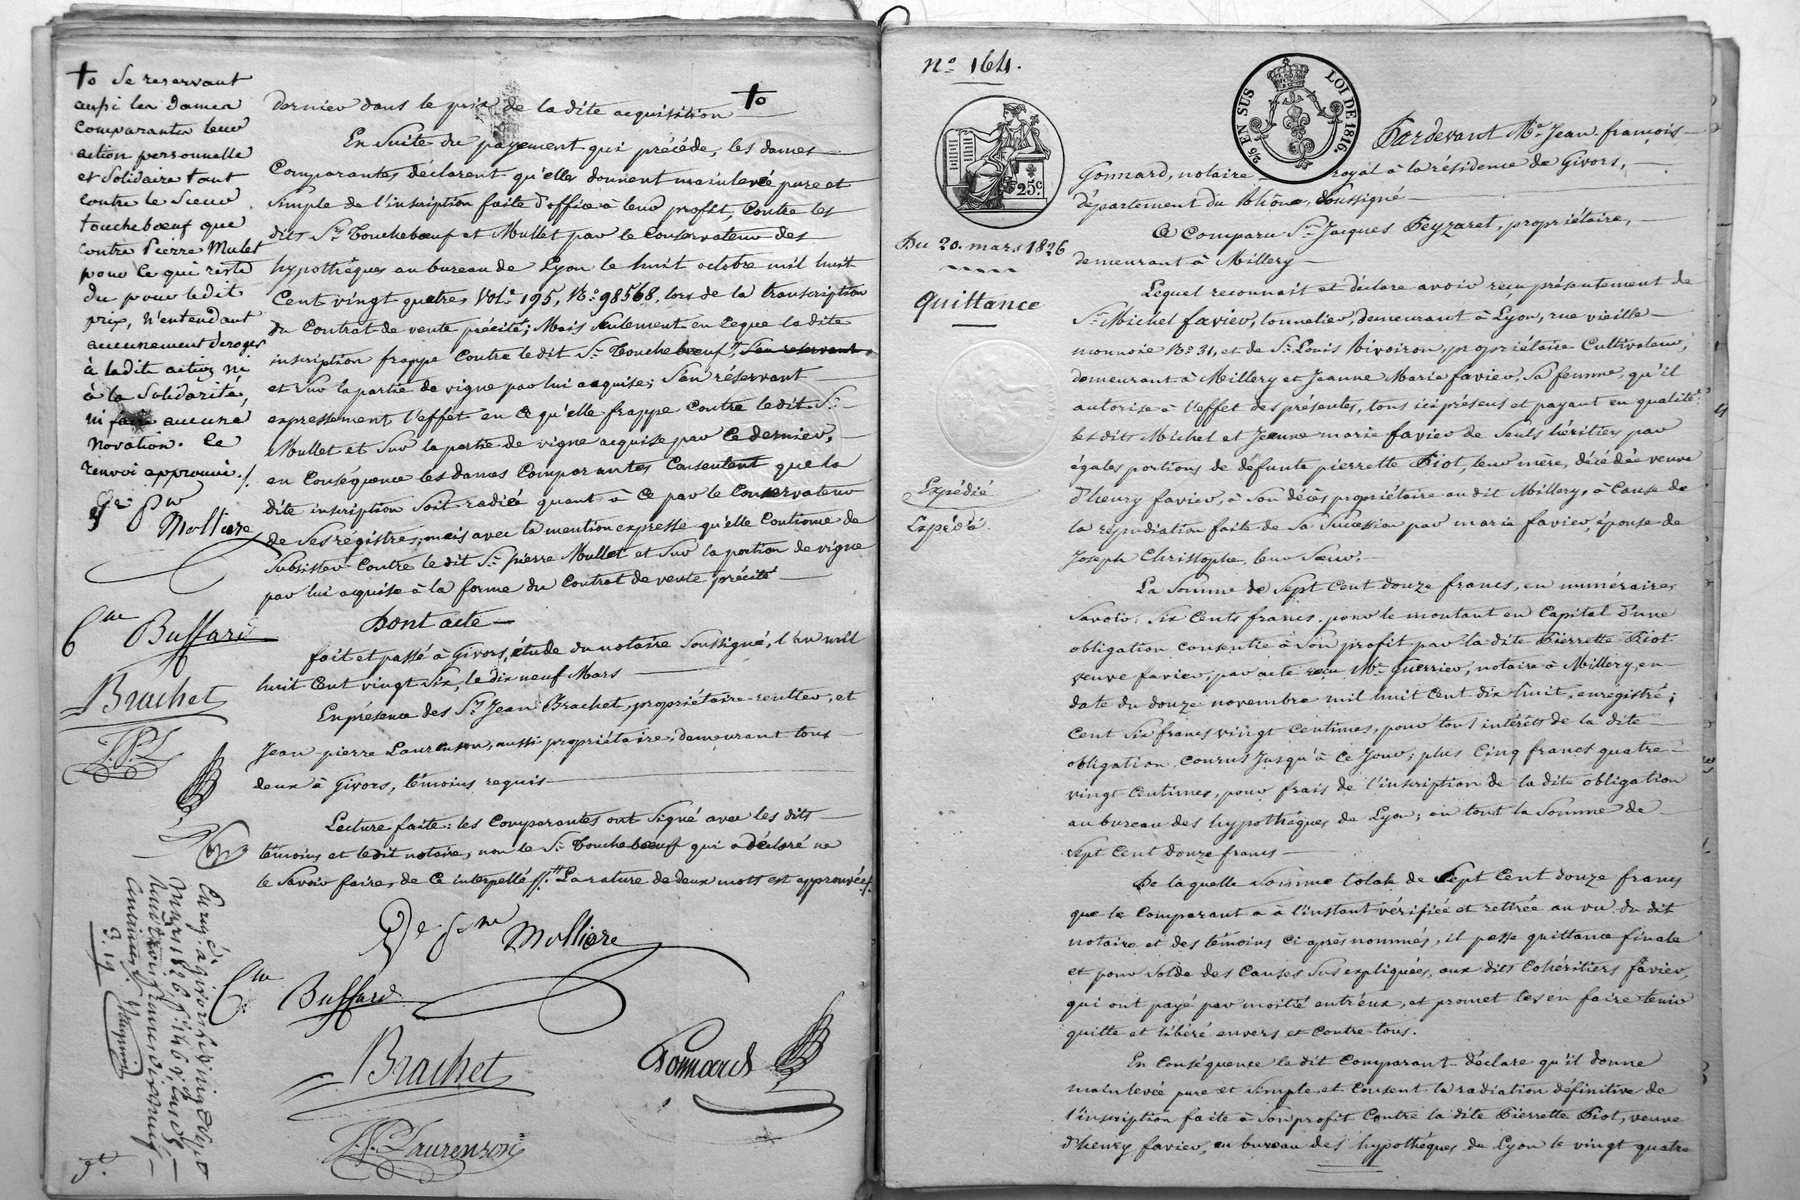 to Se reservant
aussi les dames
comparantes leur
action personnelle
et Solidaire tant
contre le Sieur
touchebœuf que
contre Pierre Mulet
pour ce qui reste
du pour ledit
prix, n'entendant
aucunement deroger
à ladite action ni
à la Solidarité,
ni faire aucune
novation. Ce
renvoi approuvé ./.
Molliere
Buffard
Brachet
J.P.L
dernier dans le prix de la dite acquisition to
En Suite du payement qui précède, les dames
Comparantes déclarent qu'elles donnent mainlevée pure et
Simple de l'inscription faite d'office à leur profit, Contre les
dits Sr. Touchebœuf et Mullet par le Conservateur des
hypothèques au bureau de Lyon le huit octobre mil huit
Cent vingt quatre, Vol.e 195, No. 98568, lors de la transcription
du Contrat de vente précité; Mais Seulement en ce que la dite
inscription frappe Contre ledit Sr. Touchebœuf, S'en reservant
et Sur la partie de vigne par lui acquise; S'en réservant
expressement l'effet en ce qu'elle frappe Contre ledit Sr.
Mullet et Sur la partie de vigne acquise par Ce dernier,
en Conséquence les dames Comparantes Consentent que la
dite inscription Soit radiée quant à ce par le Conservateur
de Ses régistres, mais avec la mention expresse qu'elle Continue de
Subsister Contre le dit Sr. pierre Mullet et Sur la portion de vigne
par lui acquise à la forme du Contrat de vente précité
Dont acte
fait et passé à Givors, étude du notaire Soussigné, l'an mil
huit Cent vingt Six, le dix neuf Mars
En présence des Srs. Jean Brachet, propriétaire rentier, et
Jean pierre Laurenson, aussi propriétaire, demeurant tous
deux à Givors, témoins requis
Lecture faite: les Comparantes ont Signé avec les dits
témoins et ledit notaire, non le Sr. Touchebœuf qui a déclaré ne
le Savoir faire, de Ce interpellé ./. La rature de deux mots est approuvée ./.
Molliere
Buffard
Brachet
Gonnard
J.P. Laurenson
Enreg.é à givors le vingt Sept
Mars 1826
huit francs dix neuf
Centimes
No. 164.
5/0 EN SUS LOI DE 1816.
25c.
Du 20. mars 1826
Quittance
Expédié
Expédié
Pardevant Me. Jean françois
Gonnard, notaire royal à la résidence de Givors,
département du Rhône, Soussigné
A Comparu Sr. Jacques Peyzaret, propriétaire,
demeurant à Millery
Lequel reconnait et déclare avoir reçu présentement de
Sr. Michel favier, tonnelier, demeurant à Lyon, rue vieille
monnoie No. 31, et de Sr. Louis Rivoiron, propriétaire Cultivateur,
demeurant à Millery et Jeanne Marie favier, Sa femme, qu'il
autorise à l'effet des présentes, tous ici présens et payant en qualité,
les dits Michel et Jeanne marie favier de Seuls héritiers par
égales portions de défunte pierrette Piot, leur mère, décédée veuve
d'henry favier, à Son décès propriétaire au dit Millery, à Cause de
la répudiation faite de Sa Succession par maria favier, épouse de
Joseph Christophe, leur Sœur.
La Somme de Sept Cent douze francs, en numéraire,
Savoir: Six Cents francs, pour le montant en Capital d'une
obligation consentie à Son profit par la dite Pierrette Piot
veuve favier, par acte reçu Me. Guerrier, notaire à Millery, en
date du douze novembre mil huit Cent dix huit, enregistré;
Cent Six francs vingt Centimes, pour tous intérêts de la dite
obligation courus Jusqu'à Ce Jour; plus Cinq francs quatre
vingt Centimes, pour frais de l'inscription de la dite obligation
au bureau des hypothèques de Lyon; en tout la Somme de
Sept Cent douze francs
De laquelle Somme totale de Sept Cent douze francs
que le Comparant a à l'instant vérifiée et retirée au vu du dit
notaire et des témoins Ci après nommés, il passe quittance finale
et pour Solde des Causes Sus expliquées, aux dits Cohéritiers favier,
qui ont payé par moitié entr'eux, et promet les en faire tenir
quitte et libéré envers et Contre tous.
En Conséquence ledit Comparant déclare qu'il donne
mainlevée pure et Simple et Consent la radiation définitive de
l'inscription faite à Son profit Contre la dite Pierrette Piot, veuve
d'henry favier, au bureau des hypothèques de Lyon le vingt quatre